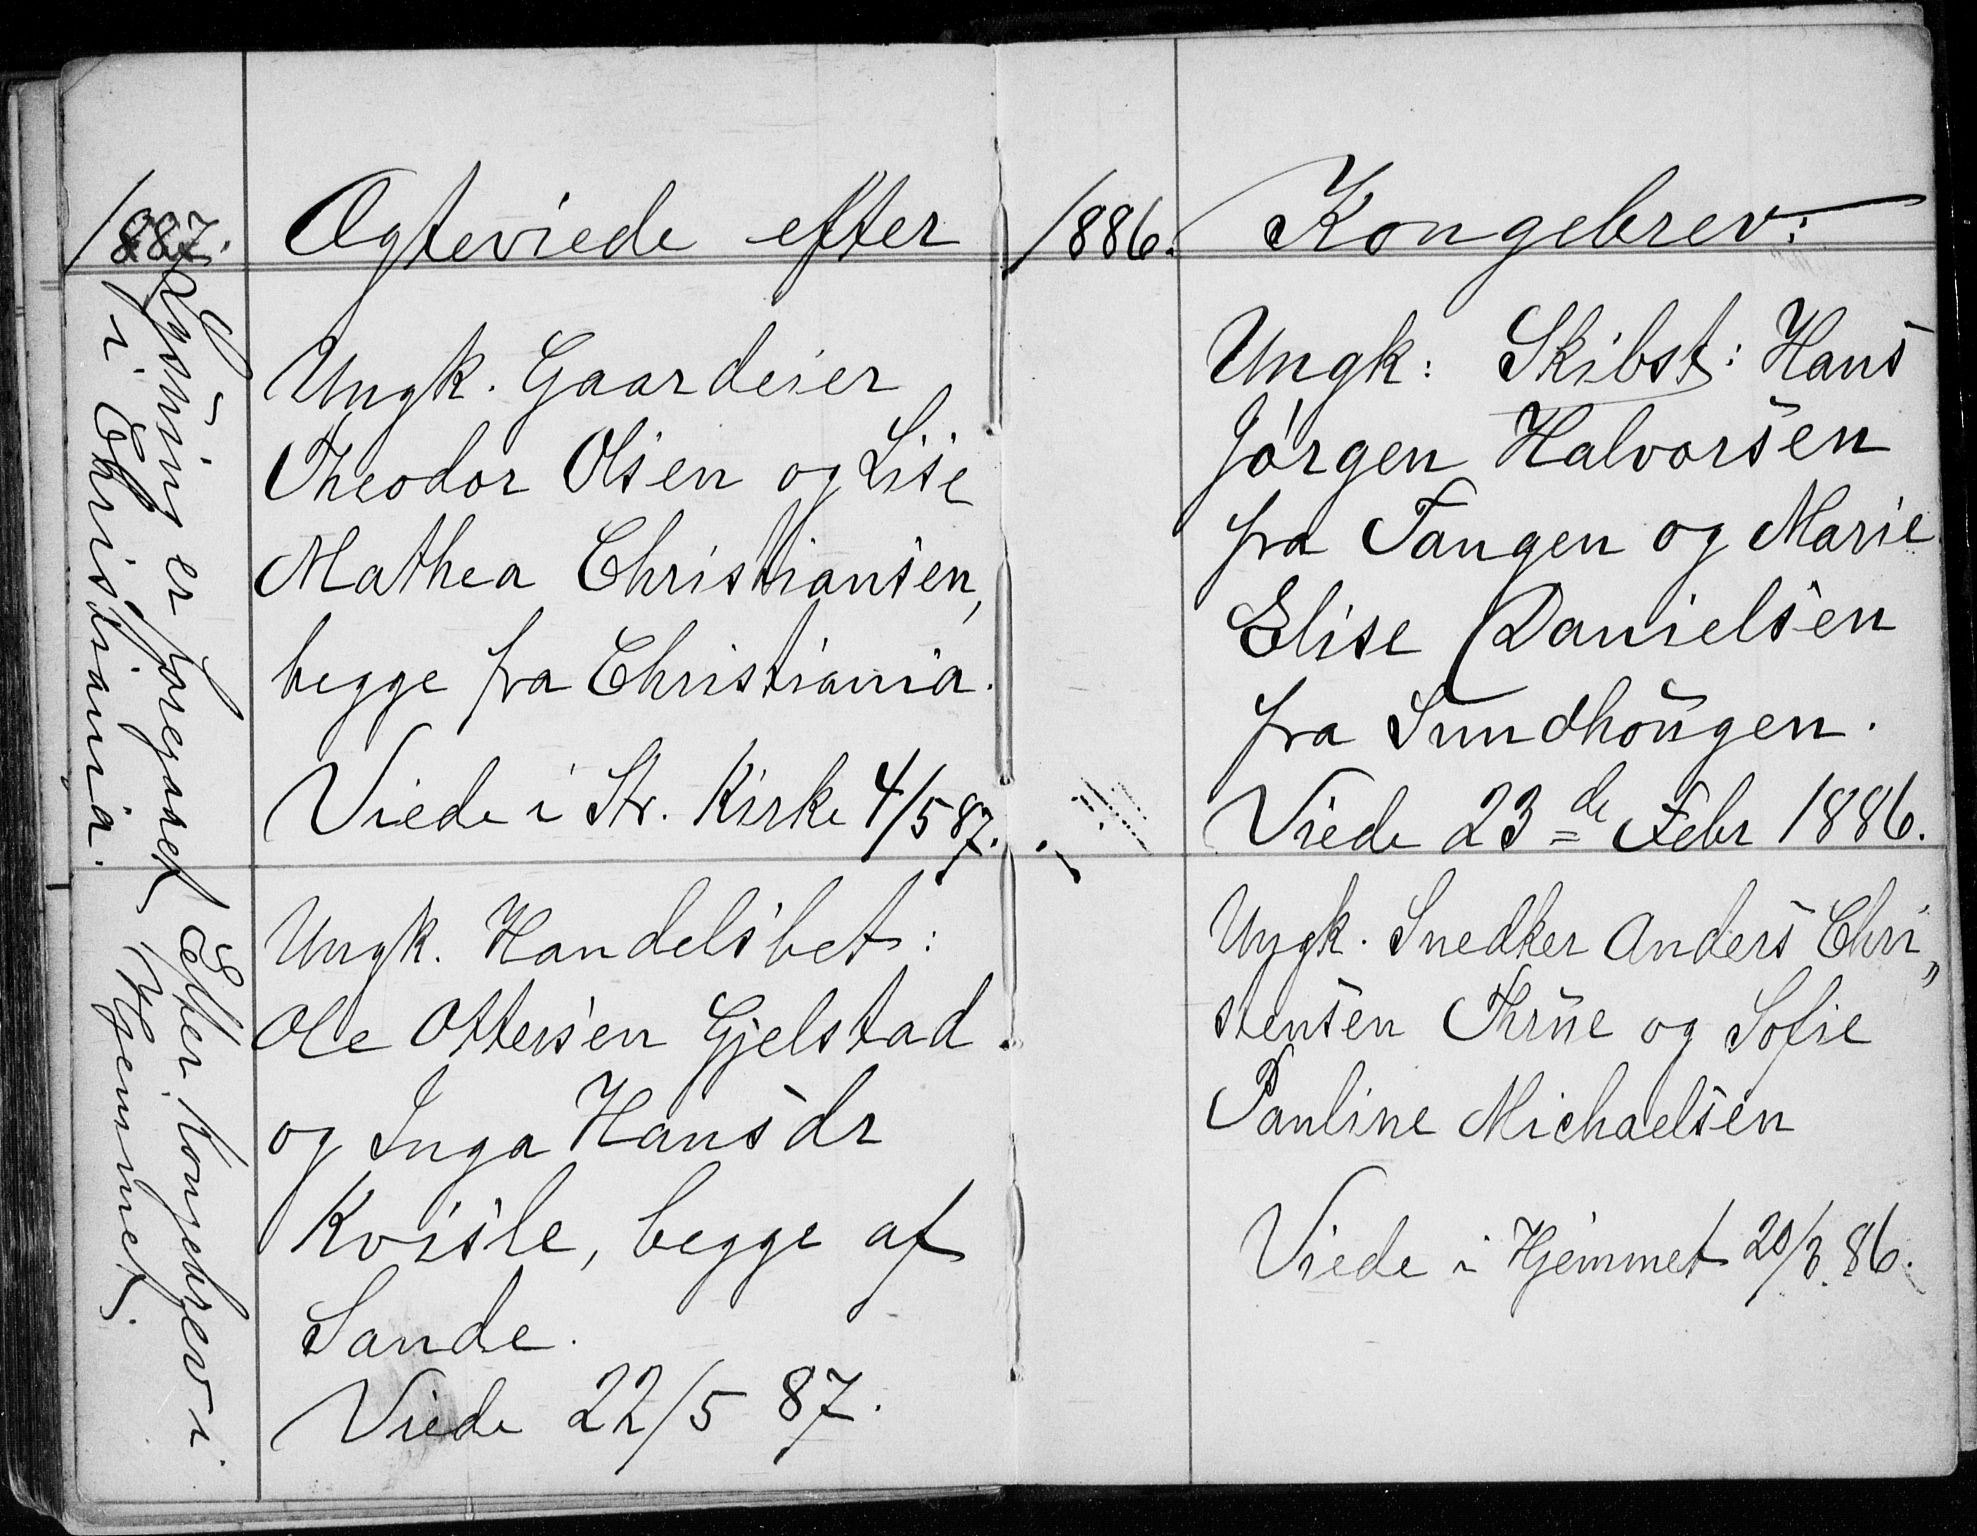 1887. Ægteviede efter
Lysning er foregaaet
i Christiania.
Ungk. Gaardeier
Theodor Olsen og Lise
Mathea Christiansen,
begge fra Christiania.
Viede i Str. Kirke 4/5 87.
Efter Kongebrev i
Hjemmet.
Ungk. Handelsbet:
Ole Ottersen Gjelstad
og Inga Hansdr
Kvisle, begge af
Sande.
Viede 22/5 87.
1886. Kongebrev:
Ungk: Skibst: Hans
Jørgen Halvorsen
fra Tangen og Marie
Elise Danielsen
fra Sundhougen.
Viede 23de Febr 1886.
Ungk. Snedker Anders Chri„
stensen Thrue og Sofie
Pauline Michaelsen
Viede i Hjemmet 20/3. 86.